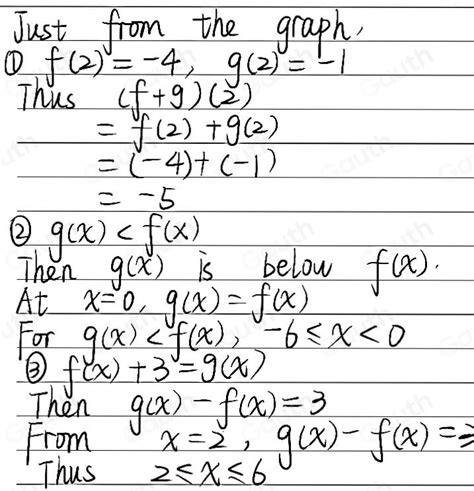 Just from the graph,
① f(2) = -4, g(2) = -1
Thus (f+g)(2)
= f(2) + g(2)
= (-4) + (-1)
= -5
② g(x) < f(x)
Then g(x) is below f(x).
At x=0, g(x) = f(x)
For g(x) < f(x), -6 ≤ x < 0
③ f(x) + 3 = g(x)
Then g(x) - f(x) = 3
From x = 2, g(x) - f(x) = 3
Thus 2 ≤ x ≤ 6